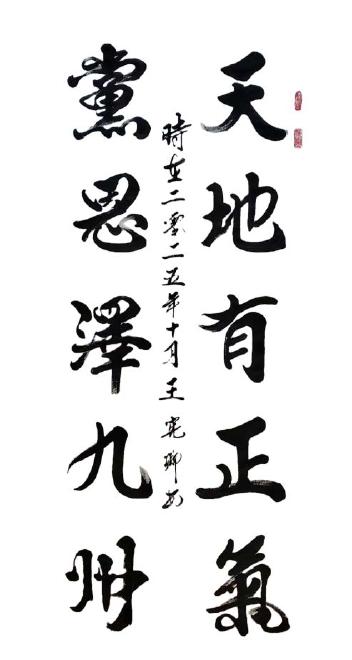 天地有正氣
黨恩澤九州
時在二零二五年十月王憲卿書